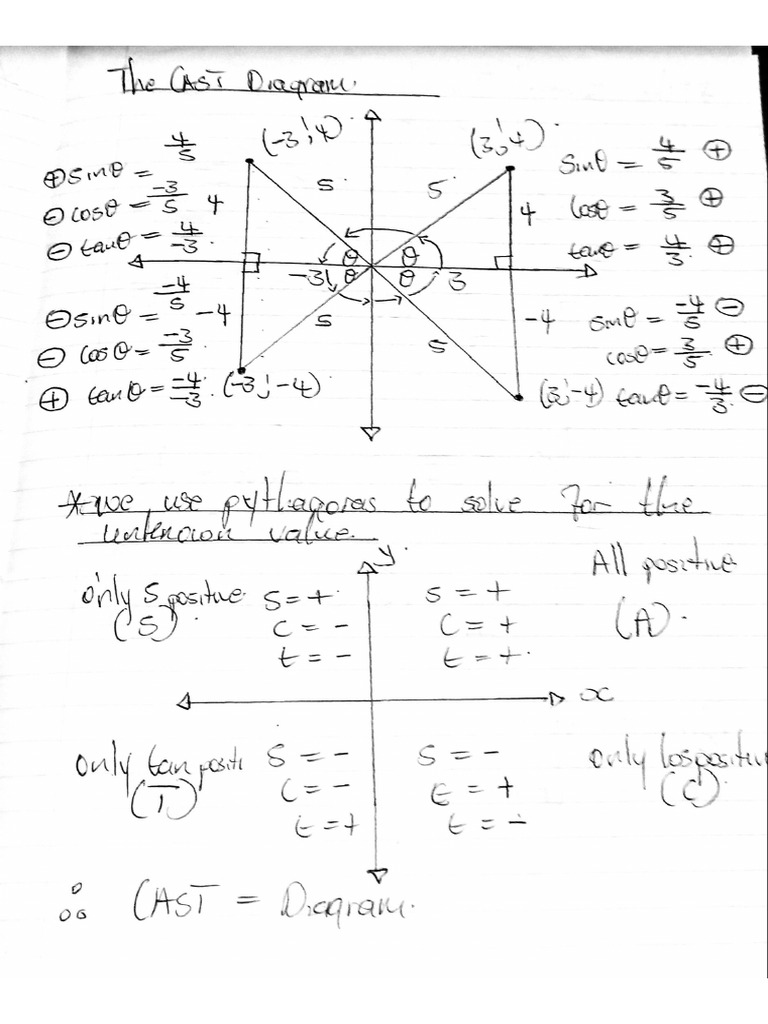 The CAST Diagram.
(-3;4)
(3;4)
⊕ sinθ = 4/5
⊖ cosθ = -3/5
⊖ tanθ = 4/-3
4
5
5
4
sinθ = 4/5 ⊕
cosθ = 3/5 ⊕
tanθ = 4/3 ⊕
θ
θ
-3
θ
θ
3
⊖ sinθ = -4/5
⊖ cosθ = -3/5
⊕ tanθ = -4/-3.
-4
5
5
-4
sinθ = -4/5 ⊖
cosθ = 3/5 ⊕
tanθ = -4/3. ⊖
(-3;-4)
(3;-4)
*we use pythagoras to solve for the
unknown value.
y
only S positive
(S).
S = +
C = -
t = -
S = +
C = +
t = +.
All positive
(A).
x
only tan positi
(T)
S = -
C = -
t = +
S = -
t = +
t = -
only Cos positiv
(C).
∴ CAST = Diagram.